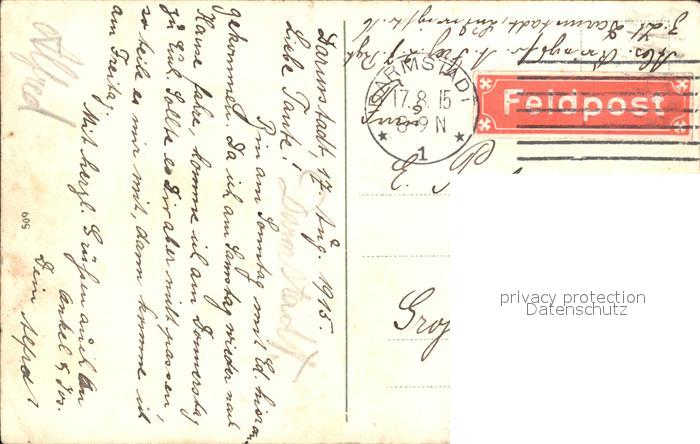 Darmstadt, 17. Aug. 1915.
Liebe Tante!
Bin am Sonntag mit Ed. hier an
gekommen. Da ich am Samstag wieder nach
Hause fahre, komme ich am Donnerstag
zu Euch. Sollte es Dir aber nicht passen,
so teile es mir mit, dann komme ich
am Freitag.
Mit herzl. Grüßen auch an
Onkel & Jos.
Dein Alfred
Alfred
Darmstadt
509
z. Zt. Darmstadt,
DARMSTADT
17.8.15
8-9 N
1
Feldpost
privacy protection
Datenschutz